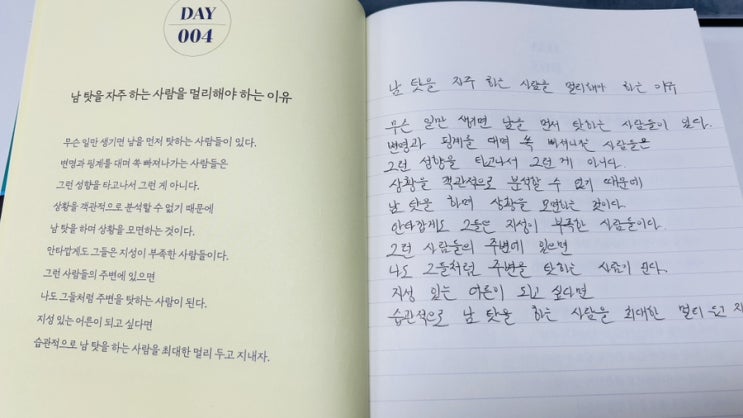 DAY
004
남 탓을 자주 하는 사람을 멀리해야 하는 이유
무슨 일만 생기면 남을 먼저 탓하는 사람들이 있다.
변명과 핑계를 대며 쏙 빠져나가는 사람들은
그런 성향을 타고나서 그런 게 아니다.
상황을 객관적으로 분석할 수 없기 때문에
남 탓을 하며 상황을 모면하는 것이다.
안타깝게도 그들은 지성이 부족한 사람들이다.
그런 사람들의 주변에 있으면
나도 그들처럼 주변을 탓하는 사람이 된다.
지성 있는 어른이 되고 싶다면
습관적으로 남 탓을 하는 사람을 최대한 멀리 두고 지내자.
남 탓을 자주 하는 사람을 멀리해야 하는 이유
무슨 일만 생기면 남을 먼저 탓하는 사람들이 있다.
변명과 핑계를 대며 쏙 빠져나가는 사람들은
그런 성향을 타고나서 그런 게 아니다.
상황을 객관적으로 분석할 수 없기 때문에
남 탓을 하며 상황을 모면하는 것이다.
안타깝게도 그들은 지성이 부족한 사람들이다.
그런 사람들의 주변에 있으면
나도 그들처럼 주변을 탓하는 사람이 된다.
지성 있는 어른이 되고 싶다면
습관적으로 남 탓을 하는 사람을 최대한 멀리 두고